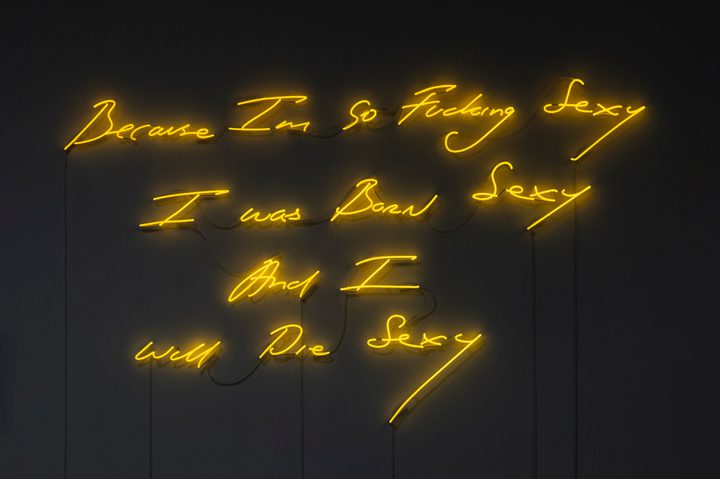 Because I'm so Fucking Sexy
I was Born Sexy
And I
will Die Sexy